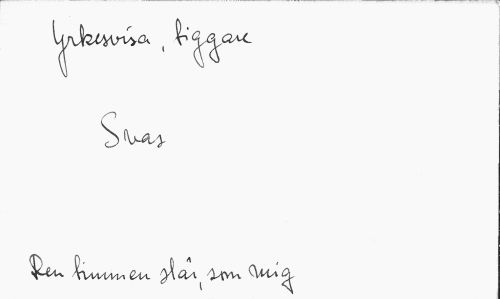 Yrkesvisa, tiggare
Svas
Den timmen slår, som mig